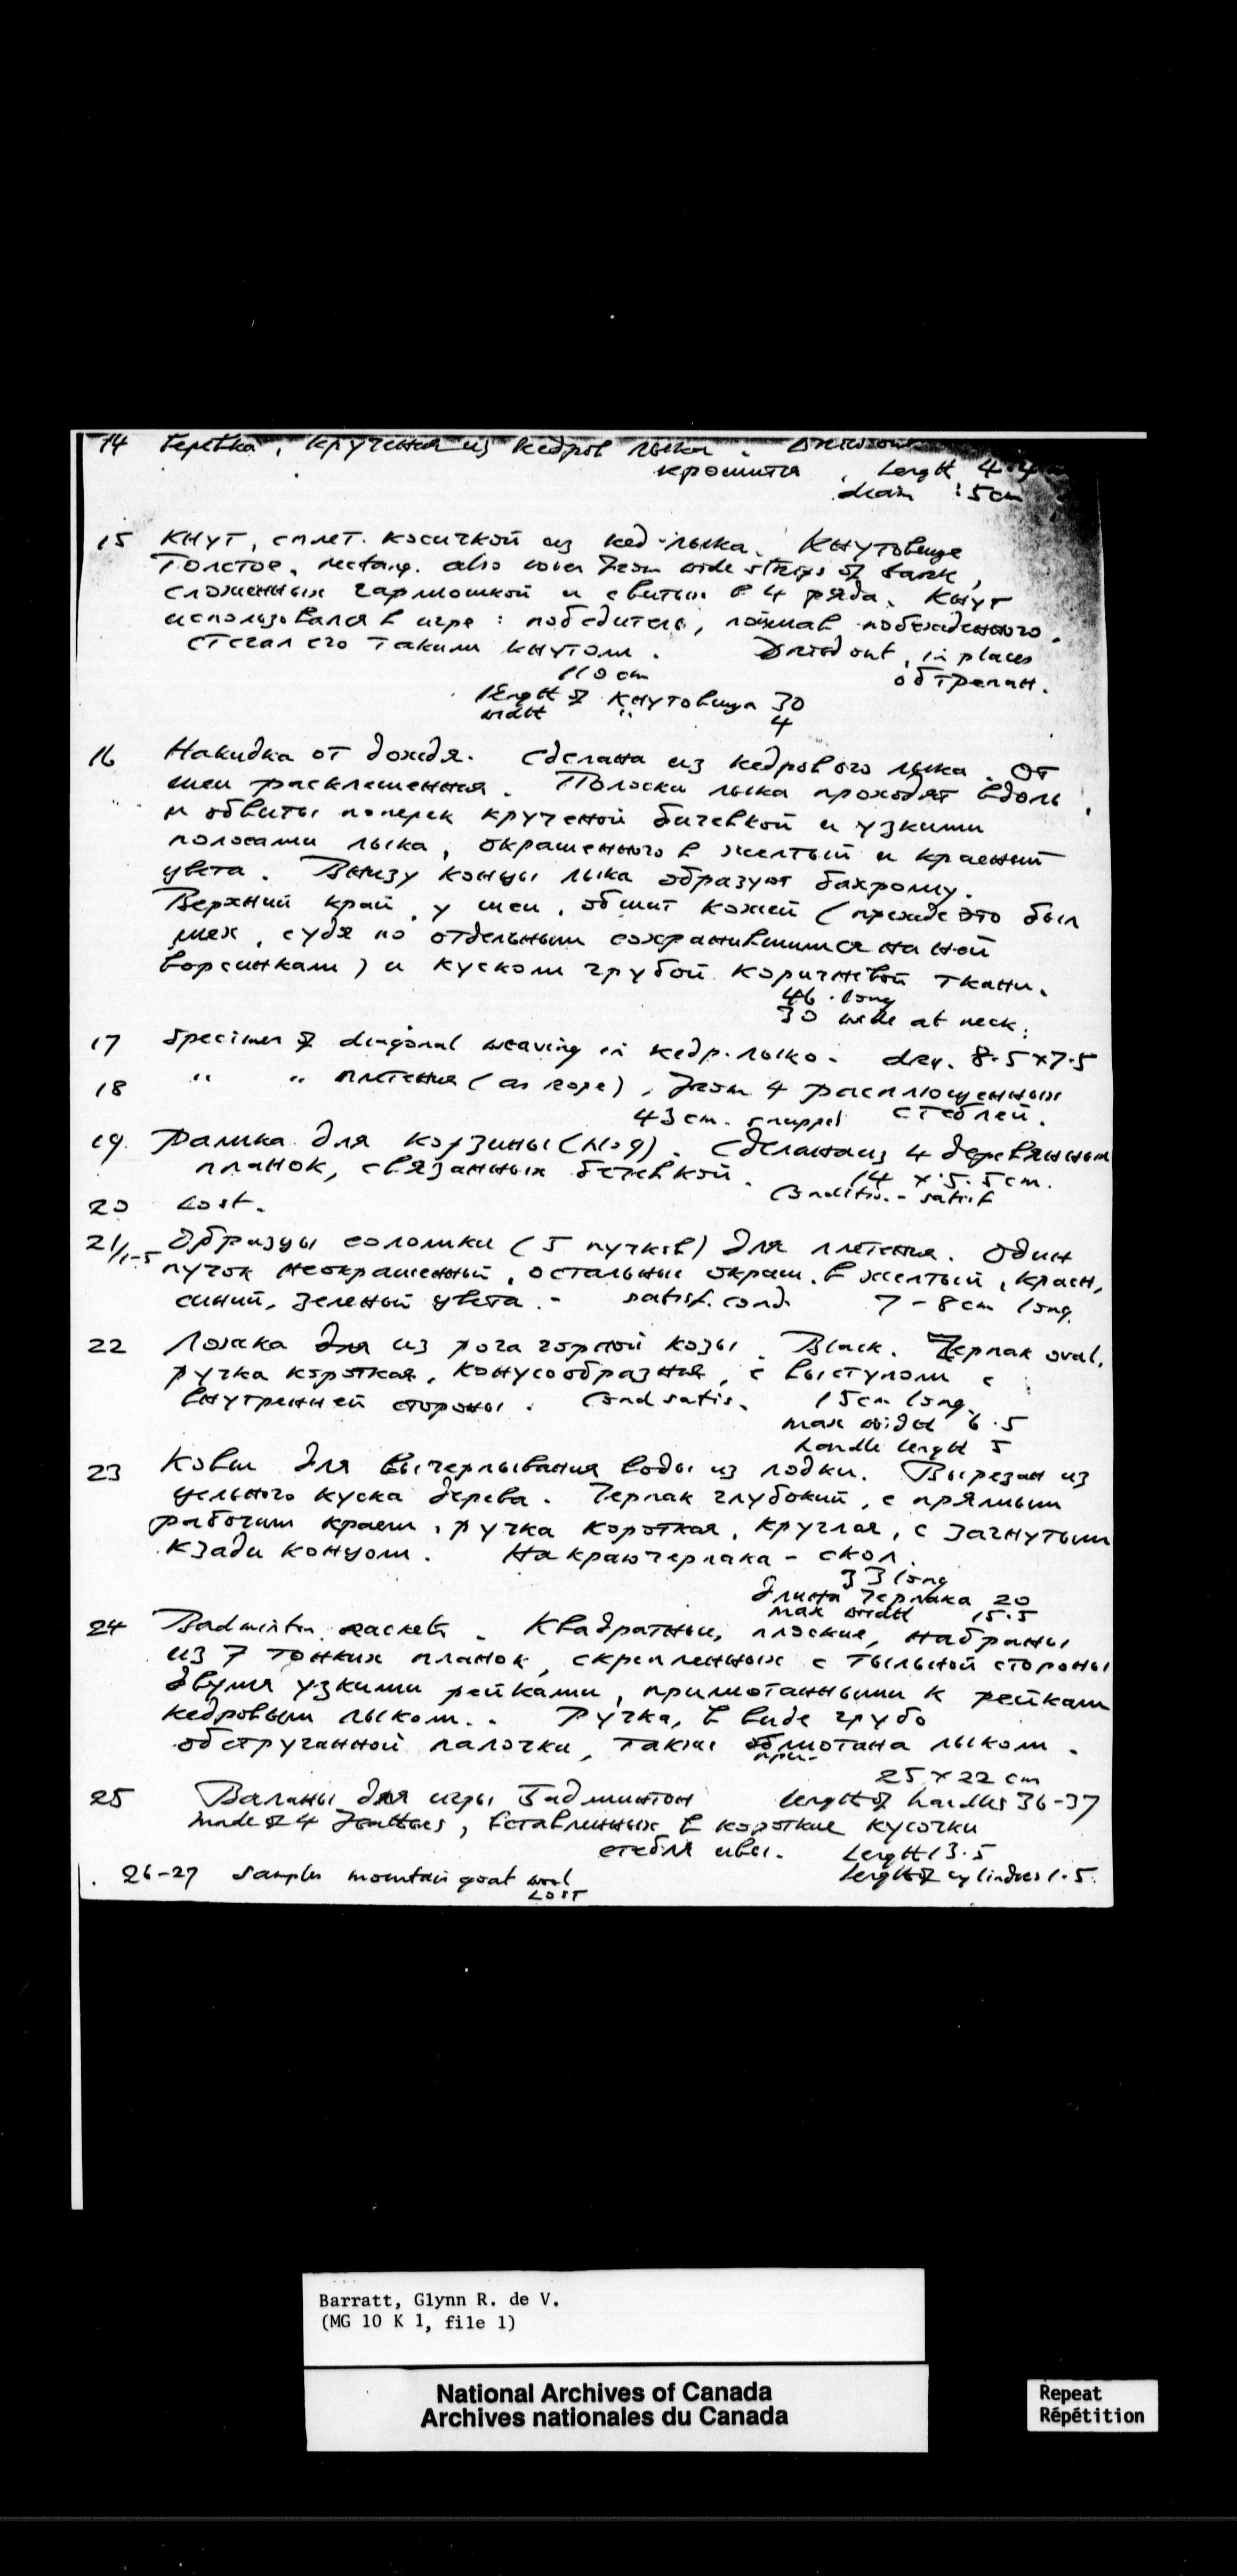 14 Веревка, крученая из кедров лыка. Dried out
крошится. Length 4.4 m
diam .5 cm
15 Кнут, сплет. косичкой из кед. лыка. Кнутовище
толстое, rectang. also woven from wide strips of bark,
сложенных гармошкой и свитых в 4 ряда. Кнут
использовался в игре: победитель, поймав побежденного,
стегал его таким кнутом. Dried out, in places
110 cm обтрепан.
length of кнутовища 30
width " 4
16 Накидка от дождя. Сделана из кедрового лыка. От
шеи расклешенная. Полоски лыка проходят вдоль
и обвиты поперек крученой бичевкой и узкими
полосами лыка, окрашенного в желтый и красный
цвета. Внизу концы лыка образуют бахрому.
Верхний край, у шеи, обшит кожей (прежде это был
мех, судя по отдельным сохранившимся на ней
ворсинкам) и куском грубой коричневой ткани.
46 long
30 wide at neck.
17 Specimen of diagonal weaving in кедр. лыко - dry. 8.5 x 7.5
18 " " плетения (as rope), from 4 расплющенных
43 cm. snapped стеблей.
19. Рамка для корзины (No 9). Сделана из 4 деревянных
планок, связанных бечевкой. 14 x 5.5 cm.
Conditio. - satisf
20 Lost.
21/1-5 Образцы соломки (5 пучков) для плетения. Один
пучок неокрашенный, остальные окраш. в желтый, красн,
синий, зеленый цвета. - satisf. cond. 7-8 cm long.
22 Ложка для из рога горной козы. Black. Черпак oval,
ручка короткая, конусообразная, с выступом с
внутренней стороны. Cond satis. 15 cm long.
max width 6.5
handle length 5
23 Ковш для вычерпывания воды из лодки. Вырезан из
цельного куска дерева. Черпак глубокий, с прямым
рабочим краем, ручка короткая, круглая, с загнутым
кзади концом. На краю черпака - скол.
33 long
длина черпака 20
max width 15.5
24 Badminton rackets. Квадратные, плоские, набраны
из 7 тонких планок, скрепленных с тыльной стороны
двумя узкими рейками, примотанными к рейкам
кедровым лыком. Ручка, в виде грубо
обструганной палочки, также обмотана лыком.
при-
25 x 22 cm
25 Воланы для игры Бадминтон length of handles 36-37
made of 4 feathers, вставленных в короткие кусочки
стебля ивы. Length 13.5
26-27 samples mountain goat wool length of cylindres 1.5
LOST
Barratt, Glynn R. de V.
(MG 10 K 1, file 1)
National Archives of Canada
Archives nationales du Canada
Repeat
Répétition